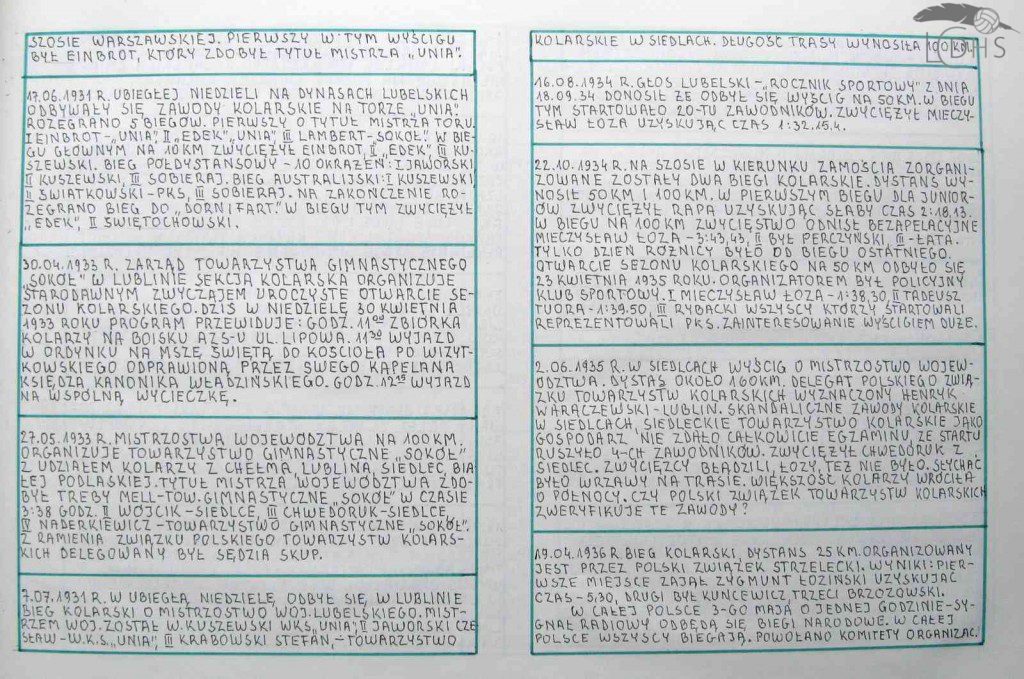 SZOSIE WARSZAWSKIEJ. PIERWSZY W TYM WYŚCIGU
BYŁ EINBROT, KTÓRY ZDOBYŁ TYTUŁ MISTRZA „UNIA".
17.06.1931 R. UBIEGŁEJ NIEDZIELI NA DYNASACH LUBELSKICH
ODBYWAŁY SIĘ ZAWODY KOLARSKIE NA TORZE „UNIA".
ROZEGRANO 5 BIEGÓW. PIERWSZY O TYTUŁ MISTRZA TORU.
I EINBROT-„UNIA", II „EDEK", „UNIA", III LAMBERT-SOKÓŁ". W BIE-
GU GŁOWNYM NA 10 KM ZWYCIĘŻYŁ EINBROT, II „EDEK", III KU-
SZEWSKI. BIEG PÓŁDYSTANSOWY - 10 OKRĄŻEŃ: I JAWORSKI
II KUSZEWSKI, III SOBIERAJ. BIEG AUSTRALIJSKI: I KUSZEWSKI,
II ŚWIATKOWSKI-PKS, III SOBIERAJ. NA ZAKOŃCZENIE RO-
ZEGRANO BIEG DO „DORNIFART". W BIEGU TYM ZWYCIĘŻYŁ
„EDEK", II ŚWIĘTOCHOWSKI.
30.04.1933 R. ZARZĄD TOWARZYSTWA GIMNASTYCZNEGO
„SOKÓŁ" W LUBLINIE SEKCJA KOLARSKA ORGANIZUJE
STARODAWNYM ZWYCZAJEM UROCZYSTE OTWARCIE SE-
ZONU KOLARSKIEGO. DZIŚ W NIEDZIELĘ 30 KWIETNIA
1933 ROKU PROGRAM PRZEWIDUJE: GODZ. 11⁰⁰ ZBIÓRKA
KOLARZY NA BOISKU AZS-U UL. LIPOWA. 11³⁰ WYJAZD
W ORDYNKU NA MSZĘ ŚWIĘTĄ DO KOŚCIOŁA PO WIZYT-
KOWSKIEGO ODPRAWIONĄ PRZEZ SWEGO KAPELANA
KSIĘDZA KANONIKA WŁADZIŃSKIEGO. GODZ. 12¹⁵ WYJAZD
NA WSPÓLNĄ WYCIECZKĘ.
27.05.1933 R. MISTRZOSTWA WOJEWÓDZTWA NA 100 KM.
ORGANIZUJE TOWARZYSTWO GIMNASTYCZNE „SOKÓŁ"
Z UDZIAŁEM KOLARZY Z CHEŁMA, LUBLINA, SIEDLEC, BIA-
ŁEJ PODLASKIEJ. TYTUŁ MISTRZA WOJEWÓDZTWA ZDO-
BYŁ TREBY MELL-TOW. GIMNASTYCZNE „SOKÓŁ" W CZASIE
3:38 GODZ. II WÓJCIK-SIEDLCE, III CHWEDORUK-SIEDLCE,
IV NADERKIEWICZ-TOWARZYSTWO GIMNASTYCZNE „SOKÓŁ".
Z RAMIENIA ZWIĄZKU POLSKIEGO TOWARZYSTW KOLARS-
KICH DELEGOWANY BYŁ SĘDZIA SKUP.
7.07.1931 R. W UBIEGŁĄ NIEDZIELĘ ODBYŁ SIĘ W LUBLINIE
BIEG KOLARSKI O MISTRZOSTWO WOJ. LUBELSKIEGO. MIST-
RZEM WOJ. ZOSTAŁ W. KUSZEWSKI WKS „UNIA", II JAWORSKI CZE-
SŁAW-W.K.S. „UNIA", III KRABOWSKI STEFAN,-TOWARZYSTWO
KOLARSKIE W SIEDLACH. DŁUGOŚĆ TRASY WYNOSIŁA 100 KM.
16.08.1934 R. GŁOS LUBELSKI-„ROCZNIK SPORTOWY" Z DNIA
18.09.34 DONOSIŁ ŻE ODBYŁ SIĘ WYŚCIG NA 50 KM. W BIEGU
TYM STARTOWAŁO 20-TU ZAWODNIKÓW. ZWYCIĘŻYŁ MIECZY-
SŁAW ŁOZA UZYSKUJĄC CZAS 1:32.15,4.
22.10.1934 R. NA SZOSIE W KIERUNKU ZAMOŚCIA ZORGANI-
ZOWANE ZOSTAŁY DWA BIEGI KOLARSKIE. DYSTANS WY-
NOSIŁ 50 KM I 100 KM. W PIERWSZYM BIEGU DLA JUNIOR-
ÓW ZWYCIĘŻYŁ RAPA UZYSKUJĄC SŁABY CZAS 2:18,13.
W BIEGU NA 100 KM ZWYCIĘSTWO ODNIÓSŁ BEZAPELACYJNE
MIECZYSŁAW ŁOZA-3:43,43, II BYŁ PERCZYŃSKI, III-ŁATA.
TYLKO DZIEŃ RÓŻNICY BYŁO OD BIEGU OSTATNIEGO.
OTWARCIE SEZONU KOLARSKIEGO NA 50 KM ODBYŁO SIĘ
23 KWIETNIA 1935 ROKU. ORGANIZATOREM BYŁ POLICYJNY
KLUB SPORTOWY. I MIECZYSŁAW ŁOZA-1:38,30, II TADEUSZ
TUORA-1:39.50, III RYBACKI WSZYSCY KTÓRZY STARTOWALI
REPREZENTOWALI PKS. ZAINTERESOWANIE WYŚCIGIEM DUŻE.
2.06.1935 R. W SIEDLCACH WYŚCIG O MISTRZOSTWO WOJEW-
ÓDZTWA. DYSTAŚ OKOŁO 160 KM. DELEGAT POLSKIEGO ZWIĄ-
ZKU TOWARZYSTW KOLARSKICH WYZNACZONY HENRYK
WARACZEWSKI-LUBLIN. SKANDALICZNE ZAWODY KOLARSKIE
W SIEDLCACH, SIEDLECKIE TOWARZYSTWO KOLARSKIE JAKO
GOSPODARZ NIE ZDAŁO CAŁKOWICIE EGZAMINU, ZE STARTU
RUSZYŁO 4-CH ZAWODNIKÓW. ZWYCIĘŻYŁ CHWEDORUK Z
SIEDLEC. ZWYCIĘZCY BŁĄDZILI, ŁOZY, TEŻ NIE BYŁO. SŁYCHAĆ
BYŁO WRZAWY NA TRASIE. WIĘKSZOŚĆ KOLARZY WRÓCIŁA
O PÓŁNOCY. CZY POLSKI ZWIĄZEK TOWARZYSTW KOLARSKICH
ZWERYFIKUJE TE ZAWODY?
19.04.1936 R BIEG KOLARSKI, DYSTANS 25 KM. ORGANIZOWANY
JEST PRZEZ POLSKI ZWIĄZEK STRZELECKI. WYNIKI: PIER-
WSZE MIEJSCE ZAJĄŁ ZYGMUNT ŁOZIŃSKI UZYSKUJĄC
CZAS-5,30, DRUGI BYŁ KUNCEWICZ, TRZECI BRZOZOWSKI.
W CAŁEJ POLSCE 3-GO MAJA O JEDNEJ GODZINIE-SY-
GNAŁ RADIOWY ODBĘDĄ SIĘ BIEGI NARODOWE. W CAŁEJ
POLSCE WSZYSCY BIEGAJĄ. POWOŁANO KOMITETY ORGANIZAC.